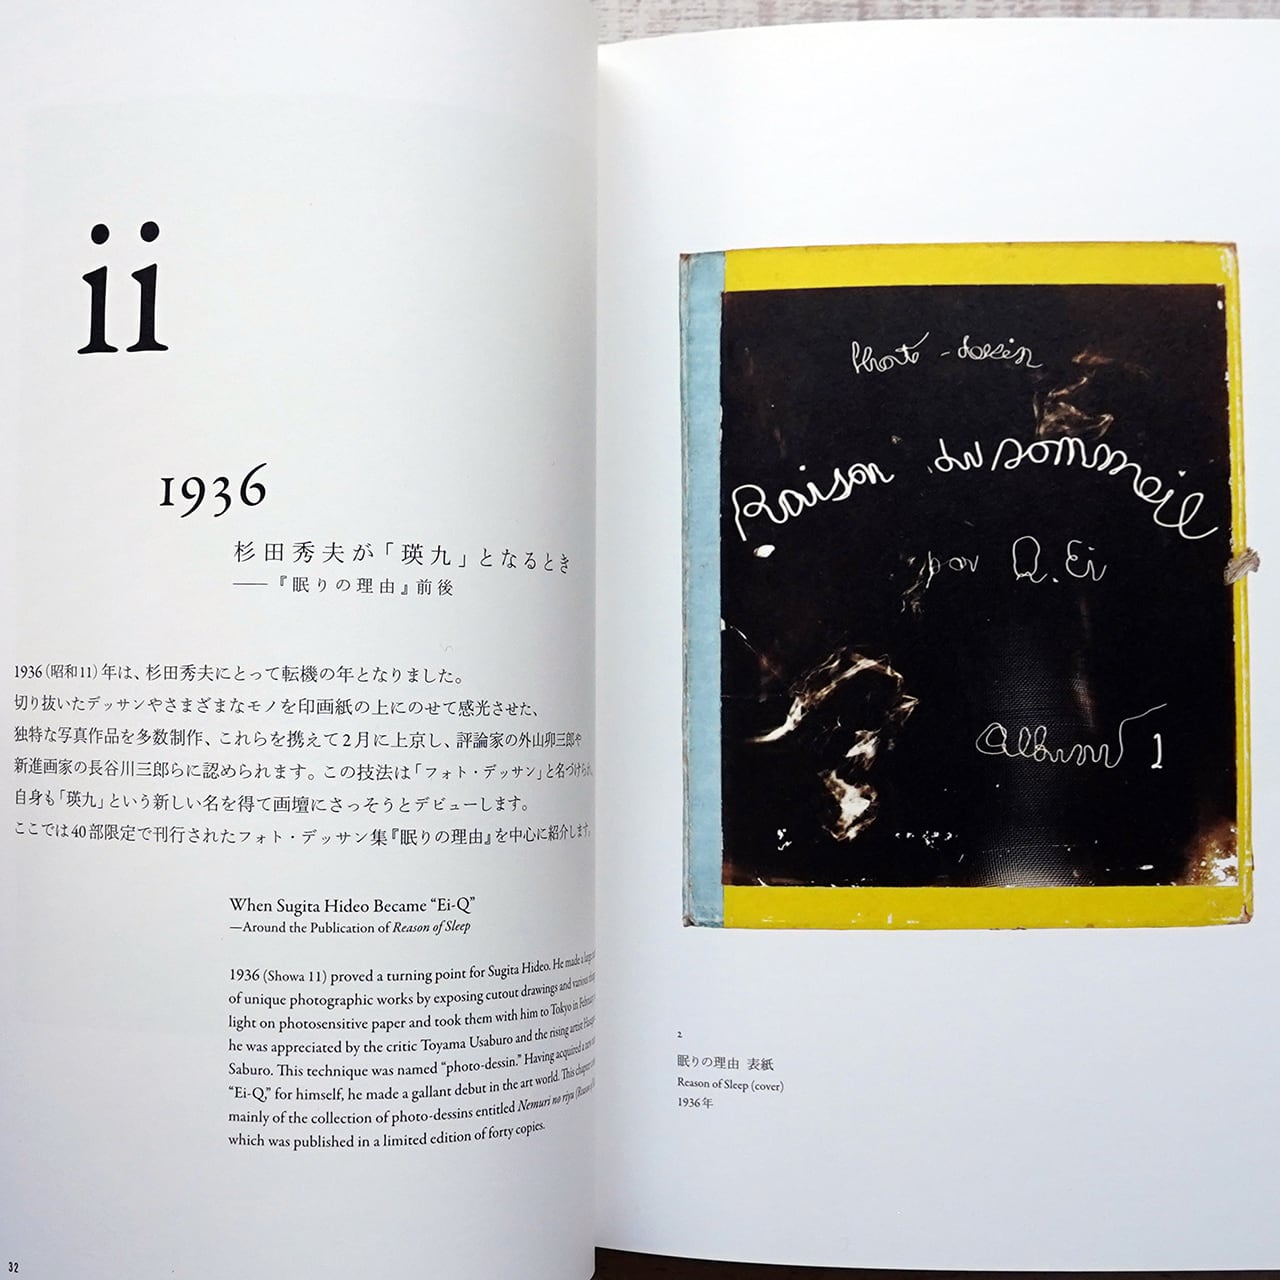 ii
1936
杉田秀夫が「瑛九」となるとき
——『眠りの理由』前後
1936（昭和11）年は、杉田秀夫にとって転機の年となりました。
切り抜いたデッサンやさまざまなモノを印画紙の上にのせて感光させた、
独特な写真作品を多数制作、これらを携えて2月に上京し、評論家の外山卯三郎や
新進画家の長谷川三郎らに認められます。この技法は「フォト・デッサン」と名づけられ、
自身も「瑛九」という新しい名を得て画壇にさっそうとデビューします。
ここでは40部限定で刊行されたフォト・デッサン集『眠りの理由』を中心に紹介します。
When Sugita Hideo Became “Ei-Q”
—Around the Publication of Reason of Sleep
1936 (Showa 11) proved a turning point for Sugita Hideo. He made a large
of unique photographic works by exposing cutout drawings and various
light on photosensitive paper and took them with him to Tokyo in February
he was appreciated by the critic Toyama Usaburo and the rising artist
Saburo. This technique was named “photo-dessin.” Having acquired a new
“Ei-Q,” for himself, he made a gallant debut in the art world. This chapter
mainly of the collection of photo-dessins entitled Nemuri no riyu (Reason of
which was published in a limited edition of forty copies.
32
Photo-dessin
Raison du sommeil
par Q. Ei
Album 1
2
眠りの理由 表紙
Reason of Sleep (cover)
1936年